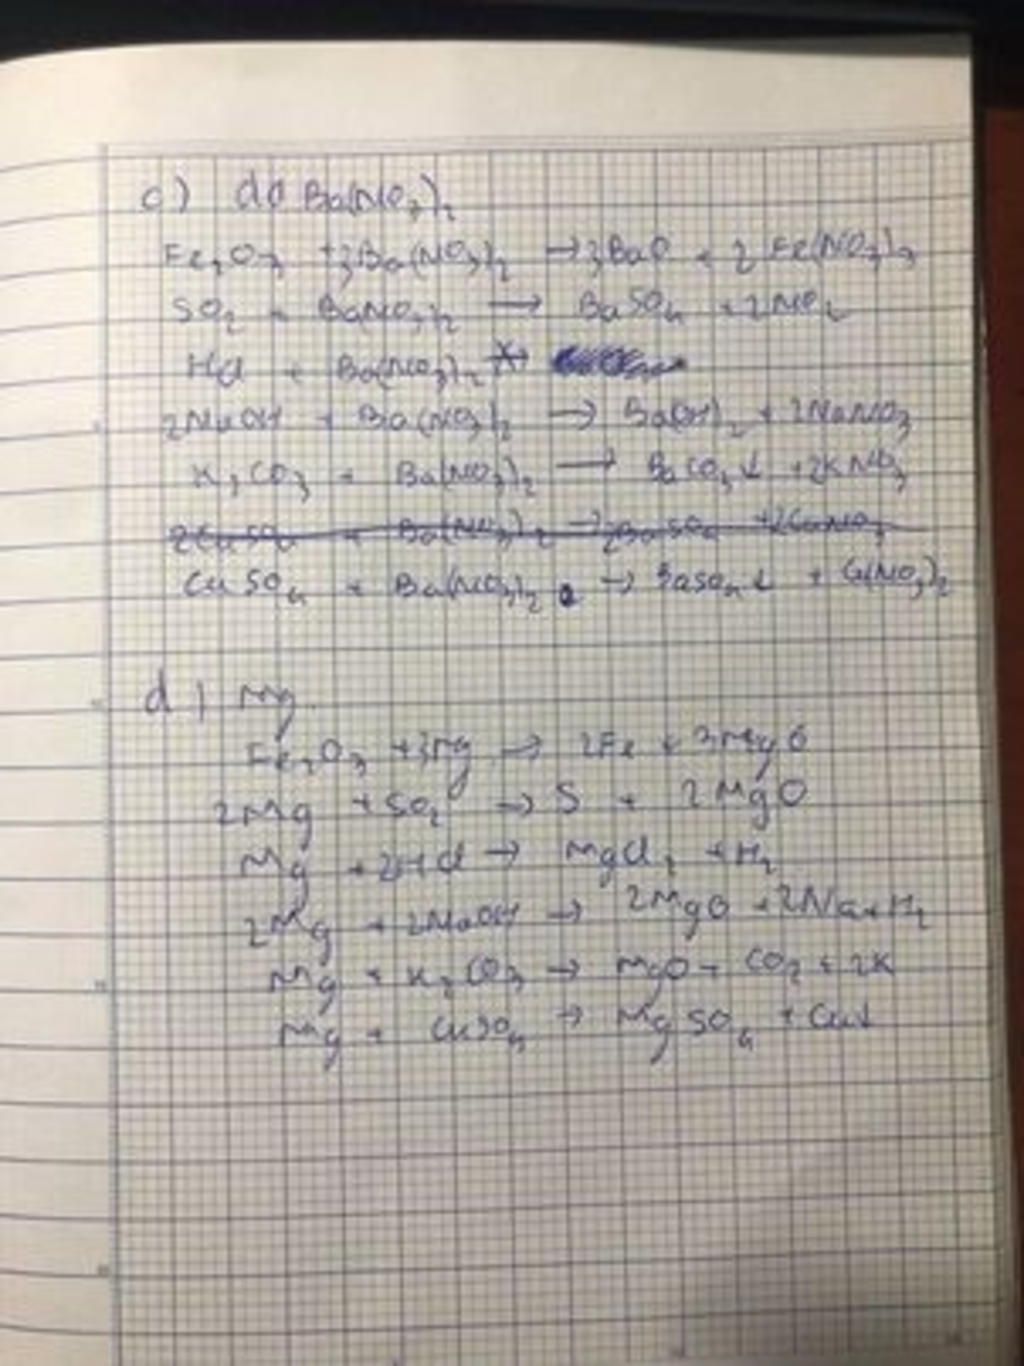 c) dd Ba(NO₃)₂
Fe₂O₃ + 3Ba(NO₃)₂ → 3BaO + 2Fe(NO₃)₃
SO₂ + Ba(NO₃)₂ → BaSO₄ + 2NO₂
HCl + Ba(NO₃)₂ ↛
2NaOH + Ba(NO₃)₂ → Ba(OH)₂ + 2NaNO₃
K₂CO₃ + Ba(NO₃)₂ → BaCO₃↓ + 2KNO₃
2CuSO₄ + Ba(NO₃)₂ → 2BaSO₄ + 2CuNO₃
CuSO₄ + Ba(NO₃)₂ → BaSO₄↓ + Cu(NO₃)₂
d) Mg
Fe₂O₃ + 3Mg → 2Fe + 3MgO
2Mg + SO₂ → S + 2MgO
Mg + 2HCl → MgCl₂ + H₂
2Mg + 2NaOH → 2MgO + 2Na + H₂
Mg + K₂CO₃ → MgO + CO₂ + 2K
Mg + CuSO₄ → MgSO₄ + Cu↓